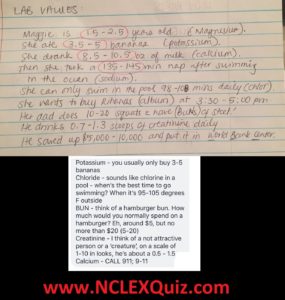 LAB VALUES
Maggie is (1.5-2.5) years old (Magnesium).
She ate (3.5-5) bananas (potassium).
She drank (8.5-10.5) oz of milk (calcium).
Then she took a (135-145) min nap after swimming
in the ocean (sodium).
She can only swim in the pool 98-108 mins daily (chlor).
She wants to buy Rihanna (album) at 3:30-5:00 pm
He dad does 10-20 squats & have (BUNs) of steel!
He drinks 0.7-1.3 scoops of creatinine daily
He saved up $5,000-10,000 and put it in World Bank Center.
Potassium - you usually only buy 3-5
bananas
Chloride - sounds like chlorine in a
pool - when's the best time to go
swimming? When it's 95-105 degrees
F outside
BUN - think of a hamburger bun. How
much would you normally spend on a
hamburger? Eh, around $5, but no
more than $20 (5-20)
Creatinine - I think of a not attractive
person or a 'creature', on a scale of
1-10 in looks, he's about a 0.5 - 1.5
Calcium - CALL 911; 9-11
www.NCLEXQuiz.com